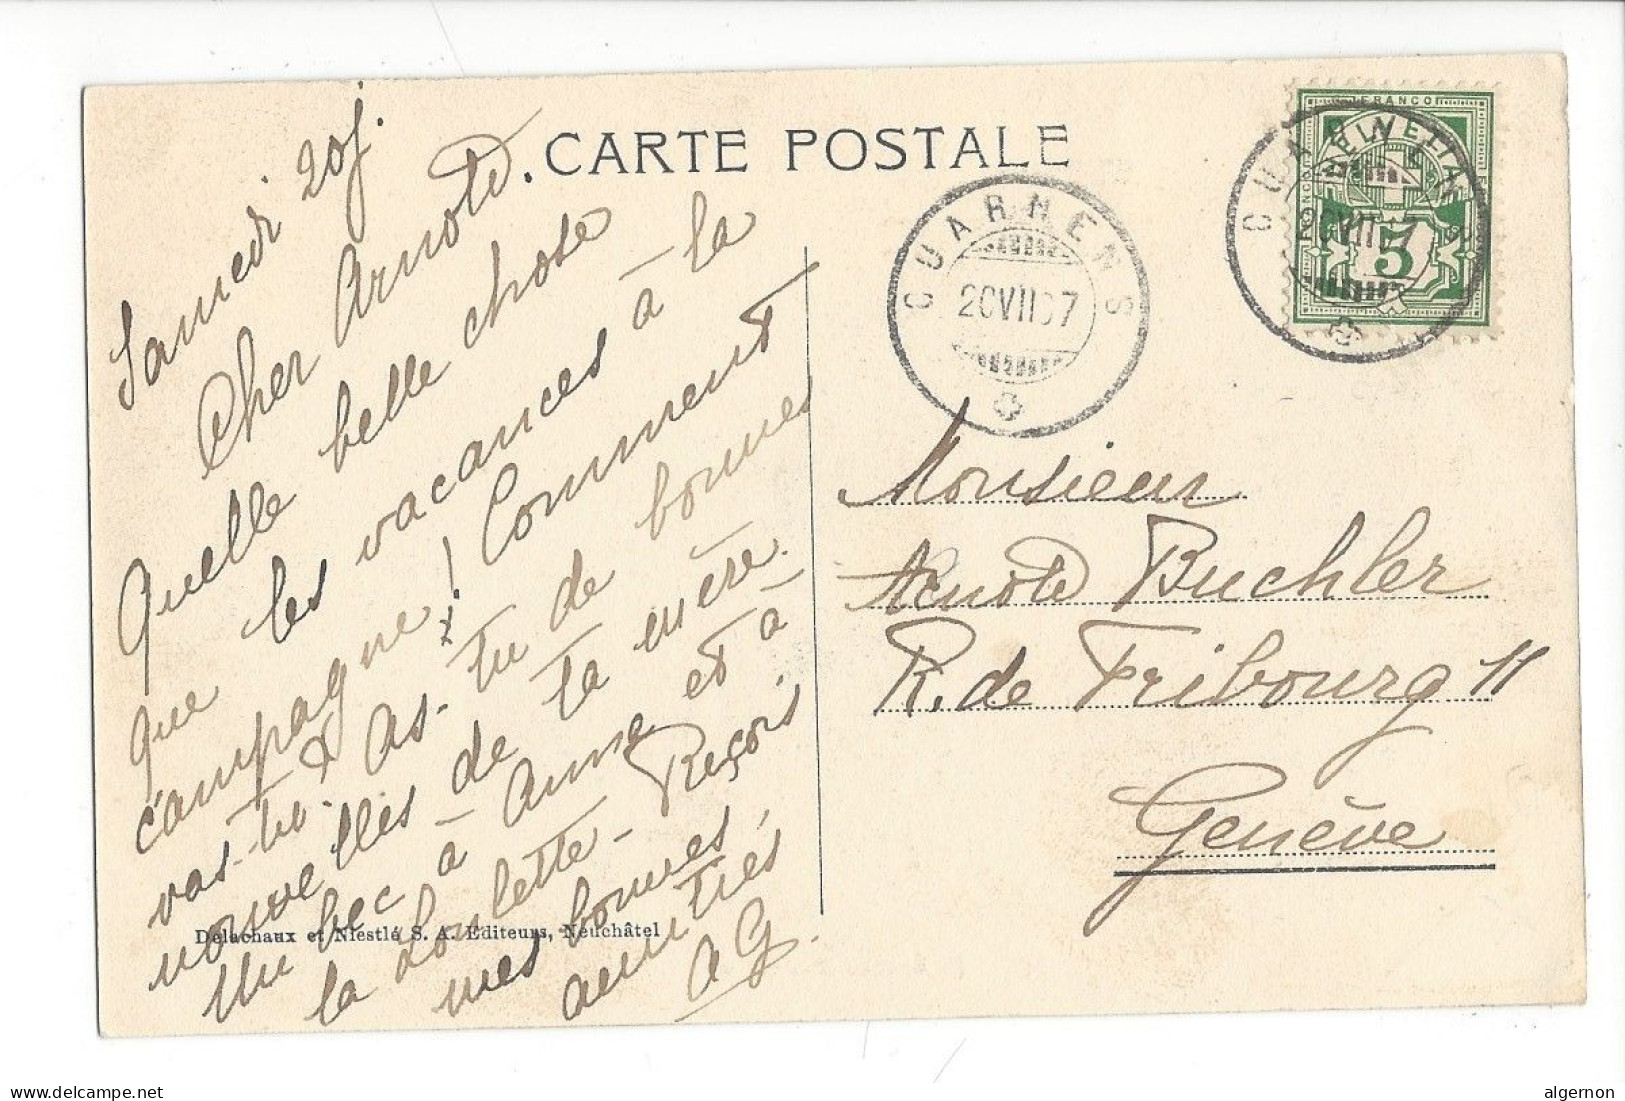 CARTE POSTALE
Samedi 20 j.
Cher Arnold.
Quelle belle chose
que les vacances à la
campagne! Comment
vas-tu? As-tu de bonnes
nouvelles de ta mère.
Un bec à Anna et à
la Loulette - Reçois
mes bonnes
amitiés
AG.
Delachaux et Niestlé S. A. Editeurs, Neuchâtel
CUARNENS
20VII07
FRANCO
HELVETIA
5
CUARNENS
20VII07
Monsieur
Arnold Buchler
R. de Fribourg 11
Genève
www.delcampe.net
algernon